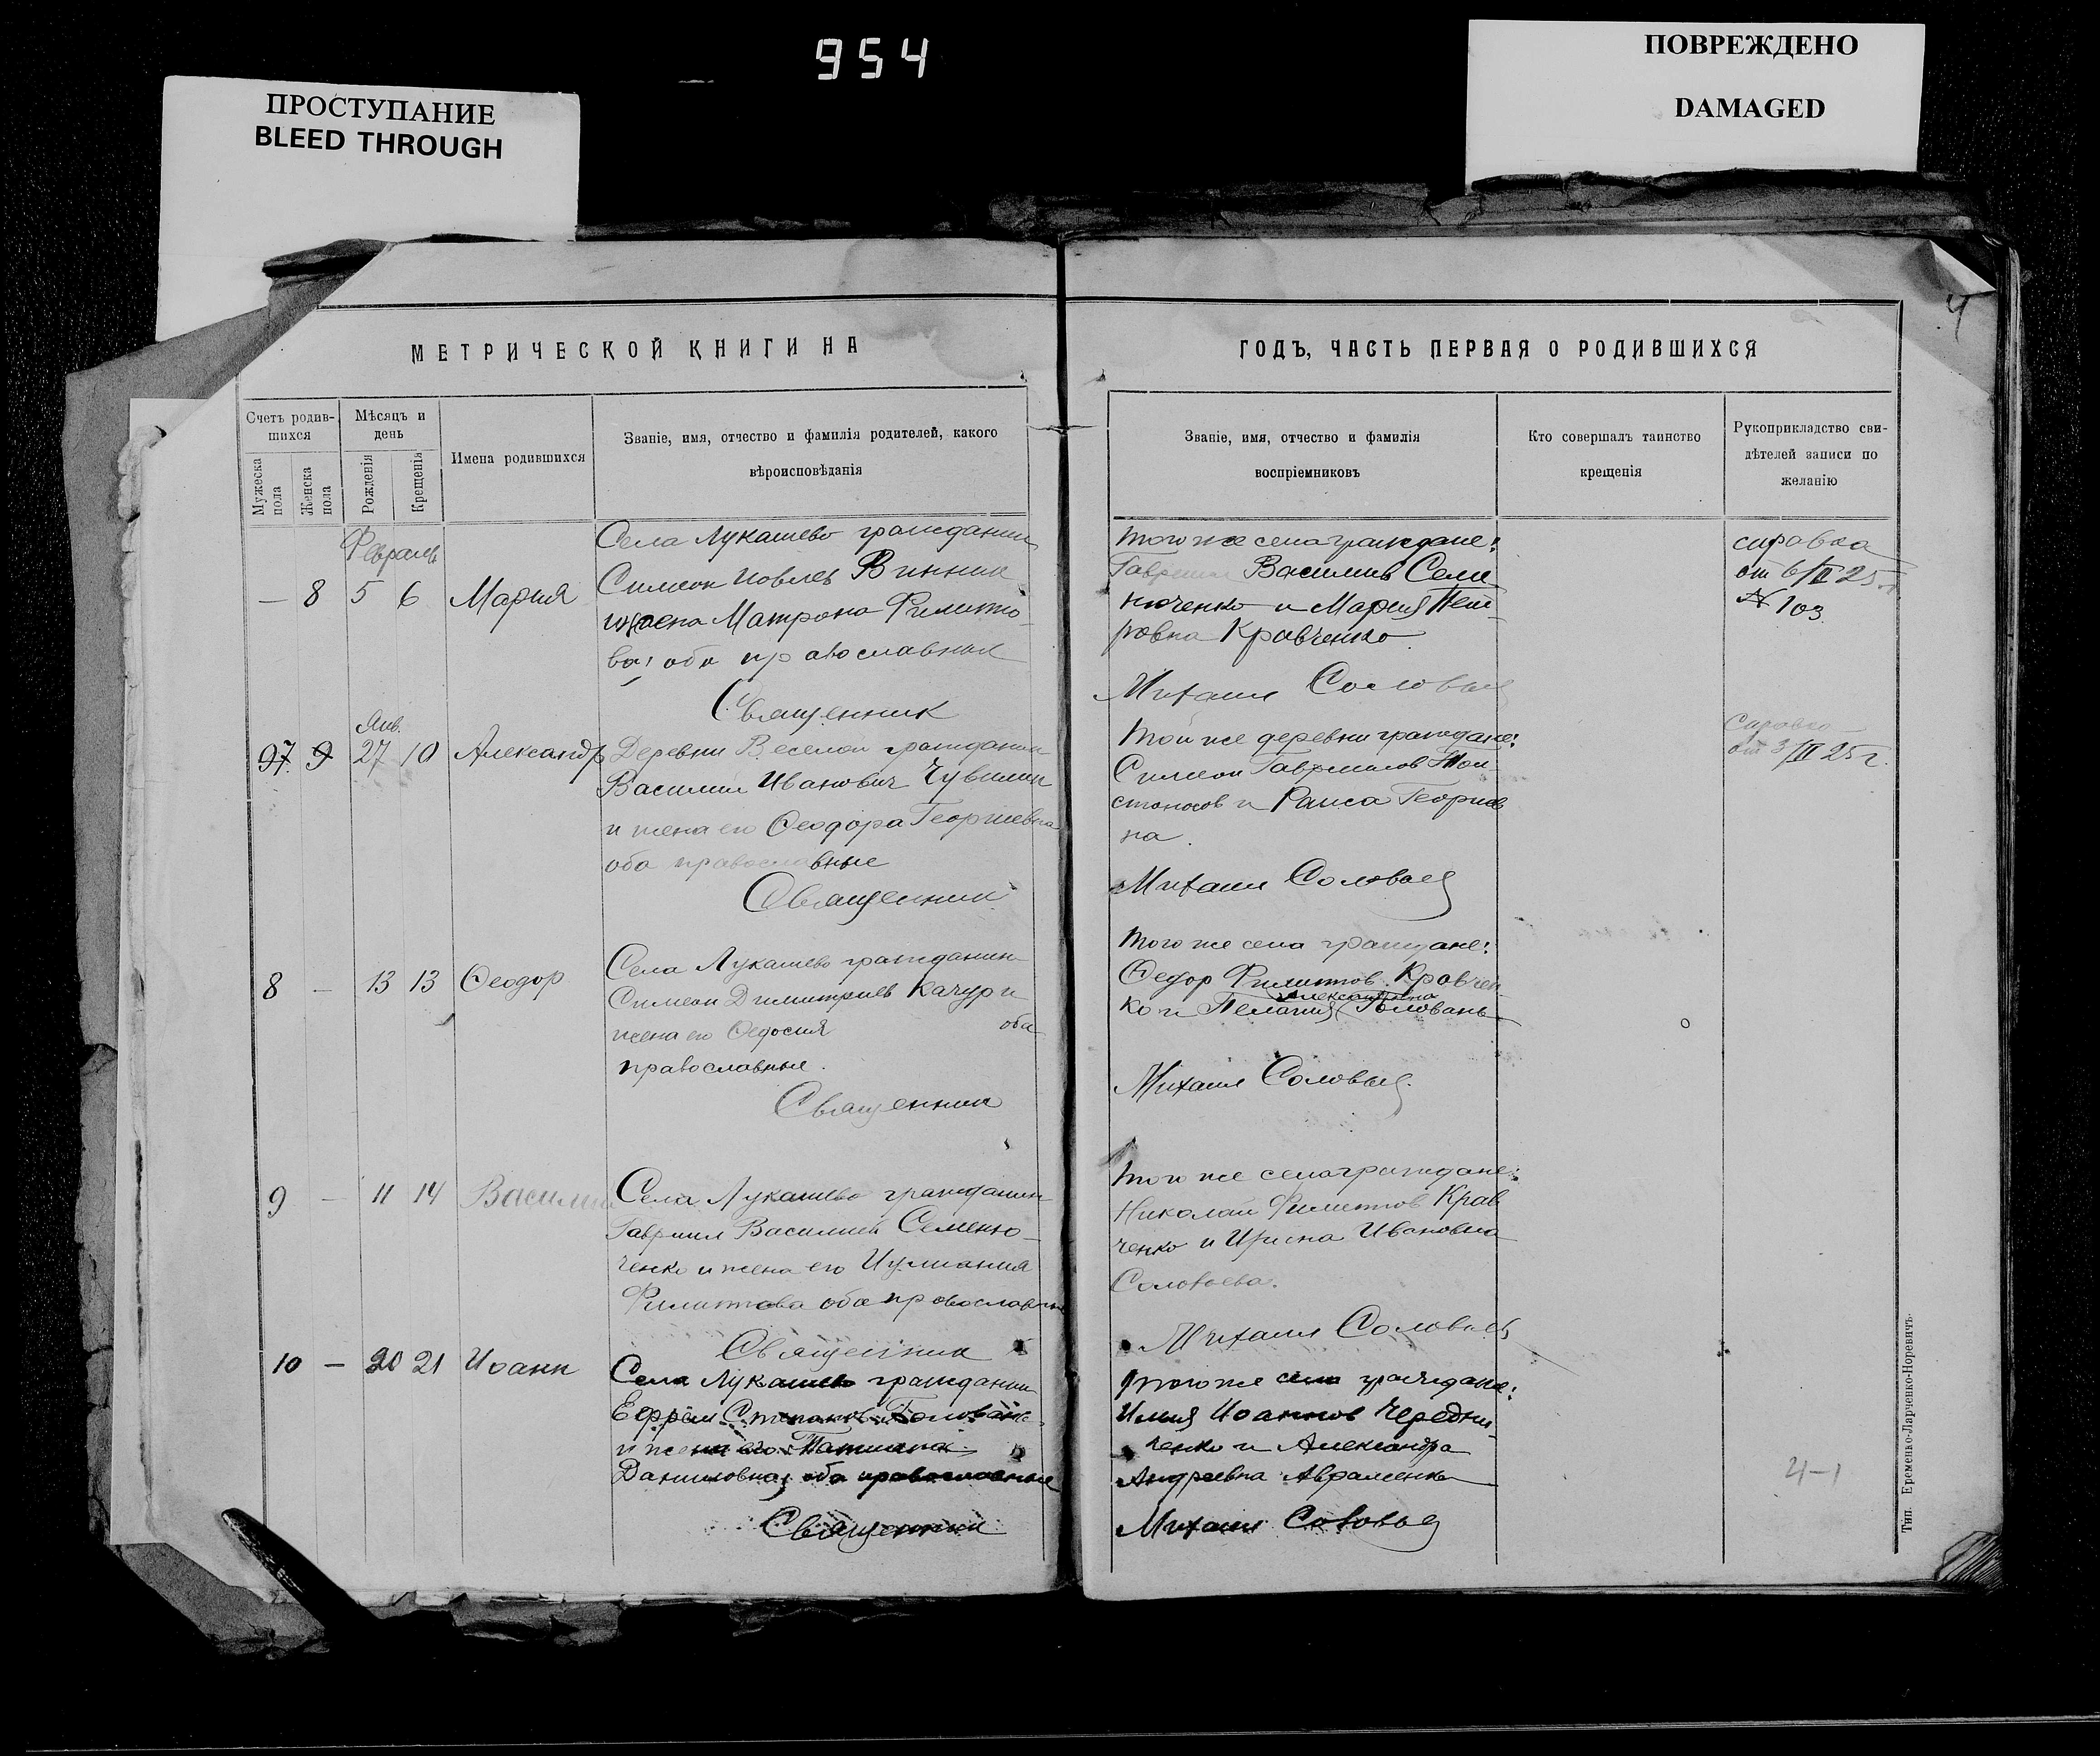 954
ПРОСТУПАНИЕ
BLEED THROUGH
ПОВРЕЖДЕНО
DAMAGED
4
МЕТРИЧЕСКОЙ КНИГИ НА
ГОДЪ, ЧАСТЬ ПЕРВАЯ О РОДИВШИХСЯ
Счетъ родив-
шихся
Мужеска
пола
Женска
пола
Мѣсяцъ и
день
Рожденія
Крещенія
Имена родившихся
Званіе, имя, отчество и фамилія родителей, какого
вѣроисповѣданія
Званіе, имя, отчество и фамилія
воспріемниковъ
Кто совершалъ таинство
крещенія
Рукоприкладство сви-
дѣтелей записи по
желанію
Февраль
— 8 5 6 Мария
Села Лукашево гражданин
Симеон Иовлев Винник
и жена Матрона Филиппо-
ва; оба православные
Священник
Того же села граждане:
Гавриил Василиев Семе-
нюченко и Мария Пет-
ровна Кравченко.
Михаил Соловьев
справка
от 6/II 25 г.
№ 103
Янв.
97 9 27 10 Александр
Деревни Веселой гражданин
Василий Иванович Чувилин
и жена его Феодора Георгиевна
оба православные
Священник
Той же деревни граждане:
Симеон Гаврилов Тол-
стоносов и Раиса Георгиев
на.
Михаил Соловьев
Справка
от 3/II 25 г.
8 — 13 13 Феодор
Села Лукашево гражданин
Симеон Димитриев Качур и
жена его Федосия оба
православные.
Священник
Того же села граждане:
Федор Филиппов Кравчен-
Александровна
ко и Пелагия Головань
Михаил Соловьев.
9 — 11 14 Василий
Села Лукашево гражданин
Гавриил Василиев Семеню-
ченко и жена его Иулиания
Филиппова оба православные
Священник
Того же села граждане:
Николай Филиппов Крав
ченко и Ирина Ивановна
Соловьева.
Михаил Соловьев
10 — 20 21 Иоанн
Села Лукашево гражданин
Ефрем Степанов Головань
и жена его Татиана
Даниловна; оба православные
Священник
Того же села граждане:
Илия Иоаннов Чередни-
ченко и Александра
Андреевна Авраменко
Михаил Соловьев
4-1
Тип. Еременко-Ларченко-Норевичъ.